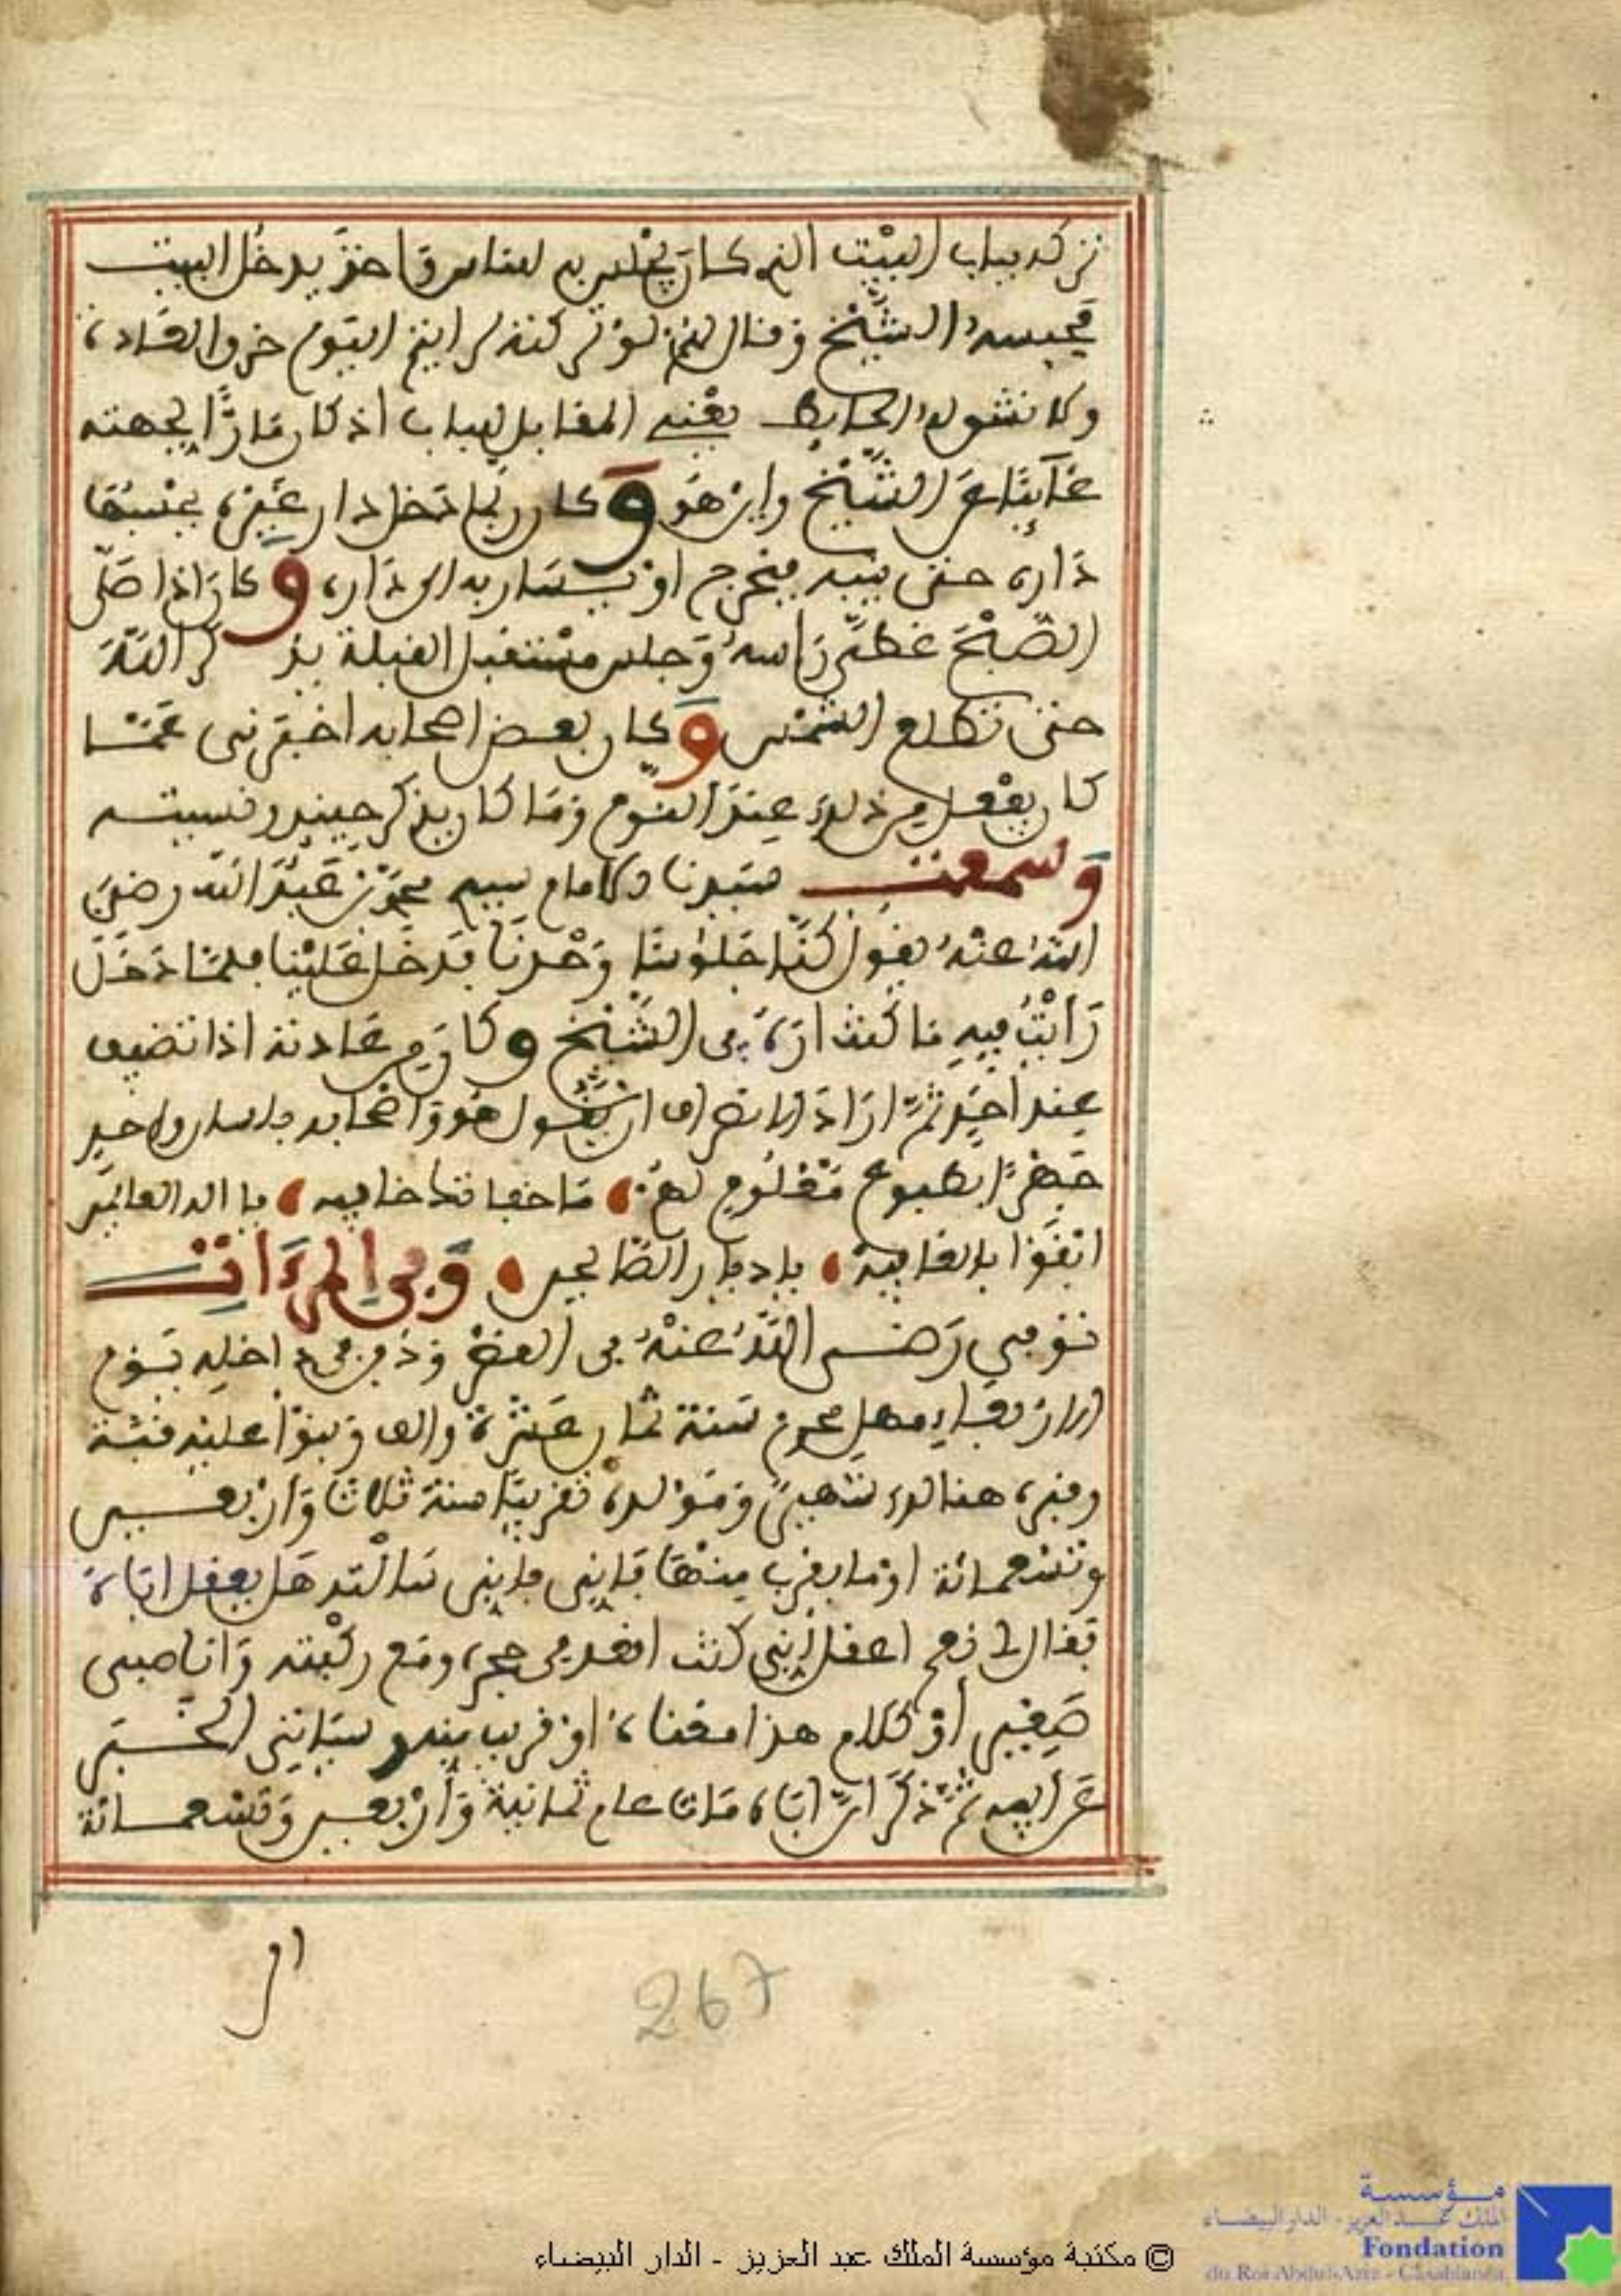 تركه بباب البيت الذي كان يجلس به للناس واخذ يدخل البيت
فحبسه الشيخ وقال لهم لو تركته لرايتم اليوم خرق العادة
ولانشق له الحايط يعني المقابل للباب اذ كان مارًّا لجهته
غآئبًا عن الشيخ واين هو وكان ربما دخل دار غيره يحسبها
داره حتى ينبه فيخرج او يسار به الى داره وكان اذا صلى
الصبح غطى رأسه وجلس مستقبل القبلة يذكر الله
حتى تطلع الشمس وكان بعض اصحابه اخبرني عما
كان يفعل من ذلك عند النوم وما كان يذكر حينئذ ونسيته
وسمعت سيدنا الامام سيدي محمد بن عبد الله رضي
الله عنه يقول كنا جلوسا وحدنا فدخل علينا فلما دخل
رأيت فيه ما كنت اراه في الشيخ وكان من عادته اذا تضيف
عند احد ثم اراد الانصراف ان يقول هو واصحابه بلسان واحد
جهرًا بطبوع معلوم لهم ما خفا فدا خافيه يا اله العالمين
اتفوا بالعافية يا ديار الصالحين وفي المرءات
توفي رضي الله عنه في القصر ودفن في داخله يوم
الاربعاء مهل محرم سنة ثمان عشرة والف وبنوا عليه قبة
وقبره هنالك شهير ومولده تقريبا سنة ثلاث واربعين
وتسعمائة او ما يقرب منها فإني فإني سالته هل يعقل اباه
فقال لي نعم اعقل إني كنت اقعد في حجره ومع ركبته وانا صبي
صغير أو كلام هذا معناه او قريب منه وسياتي الخبر
عن ابيه ثم ذكر ان اباه مات عام ثمانية وأربعين وتسعمائة
267
© مكتبة مؤسسة الملك عبد العزيز - الدار البيضاء
مؤسسة
الملك عبد العزيز - الدار البيضاء
Fondation
du Roi Abdul-Aziz - Casablanca